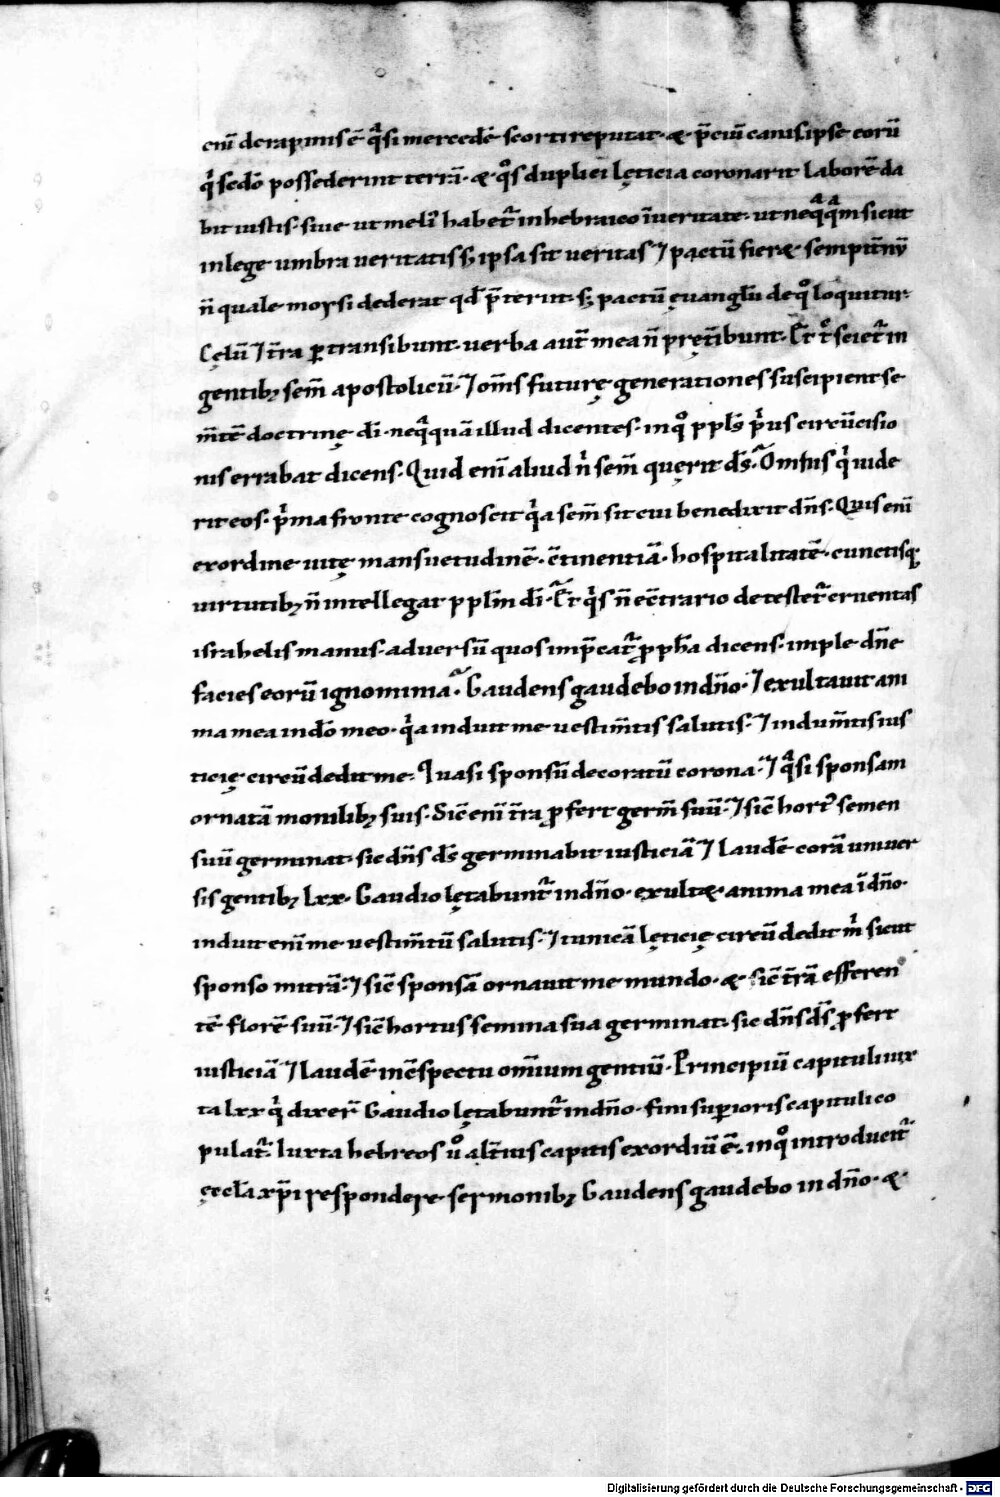 eni̅ de rapinis e̅ qͣsi mercede̅ scorti reputat · & p̅ciu̅ canis · ipse eoru̅
qͥ sedo̅ possederint terra̅ · & qͦs duplici lęticia coronarit labore̅ da
bit iustis · siue ut meli᷒ habet᷑ in hebraico i̅ueritate · ut neqͣqͣm sicut
in lege umbra ueritatis sꝫ ipsa sit ueritas ⁊ pactu̅ fier& sempit̅nu̅
n̅ quale moysi dederat qd̅ p̅teriit · sꝫ pactu̅ ęuangl̅ii de qͦ loquitur ·
Cęlu̅ ⁊ t̅ra ꝑtransibunt · uerba aut̅ mea n̅ pręt̅ibunt · Et tͦ sciet᷑ in
gentibꝫ sem̅ apostolicu̅ · ⁊ om̅s futurę generationes suscipient se
m̅te̅ doctrinę di̅ · neqͣqua̅ illud dicentes · in qͦ ppl̅s pͥus circu̅cisio
nis errabat dicens · Quid eni̅ aliud nͥ sem̅ querit ds̅ · Om̅is qͥ uide
rit eos · pͥma fronte cognoscit qͥa sem̅ sit cui benedixit dn̅s · Quis eni̅
ex ordine uitę mansuetudine̅ · c̅tinentia̅ · hospitalitate̅ · cunctisqꝫ
uirtutibꝫ n̅ intellegat ppl̅m di̅ · Et qͥs n̅ ec̅trario detestet᷑ cruentas
israhelis manus · aduersu̅ quos imp̅cat᷑ ꝓph̅a dicens · imple dn̅e
facies eoru̅ ignominia · Gaudens gaudebo in dn̅o · ⁊ exultauit ani
ma mea in do̅ meo · qͥa induit me uestim̅tis salutis · ⁊ indum̅tis ius
ticię circu̅dedit me · Quasi sponsu̅ decoratu̅ corona · ⁊ qͣsi sponsam
ornata̅ monilibꝫ suis · Sic̅ eni̅ t̅ra ꝓfert germ̅ suu̅ · ⁊ sic̅ hort᷒ semen
suu̅ germinat · sic dn̅s ds̅ germinabit iusticia̅ ⁊ laude̅ cora̅ uniuer
sis gentibꝫ lxx · Gaudio lętabunt᷑ in dn̅o · exult& · anima mea i̅ dn̅o ·
induit eni̅ me uestim̅tu̅ salutis · ⁊ tunica̅ lęticię circu̅dedit mͥ sicut
sponso mitra̅ · ⁊ sic̅ sponsa̅ ornauit me mundo · & sic̅ t̅ra̅ efferen
te̅ flore̅ suu̅ · ⁊ sic̅ hortus semina sua germinat · sic dn̅s ds̅ ꝓfert
iusticia̅ ⁊ laude̅ in c̅spectu om̅ium gentiu̅ · Principiu̅ capituli iux
ta lxx qͥ dixer̅ Gaudio lętabunt᷑ in dn̅o · fini suꝑioris capituli co
pulat᷑ · Iuxta hebreos uͦ alt̅ius capitis exordiu̅ e̅ · in qͦ introducit᷑
ęccl̅a xp̅i respondere sermonibꝫ Gaudens gaudebo in dn̅o · & ·
Digitalisierung gefördert durch die Deutsche Forschungsgemeinschaft - DFG